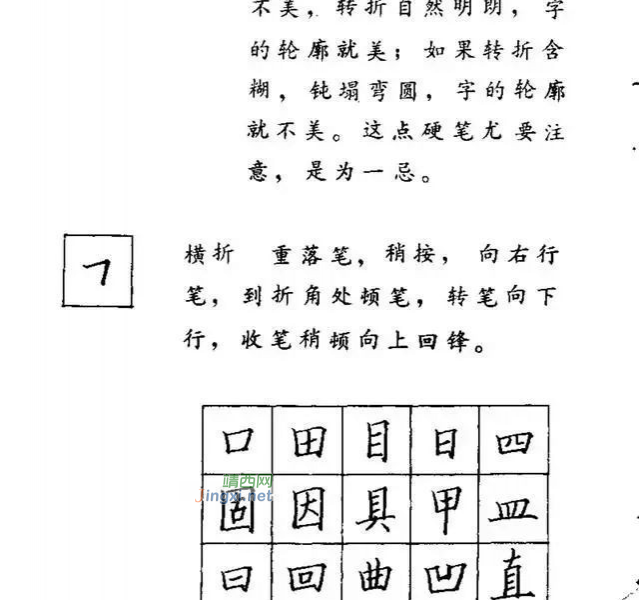 不美，转折自然明朗，字
的轮廓就美；如果转折含
糊，钝塌弯圆，字的轮廓
就不美。这点硬笔尤要注
意，是为一忌。
横折 重落笔，稍按，向右行
笔，到折角处顿笔，转笔向下
行，收笔稍顿向上回锋。
口 田 目 日 四
靖西网
Jingxi.net
固 因 具 甲 皿
曰 回 曲 凹 直